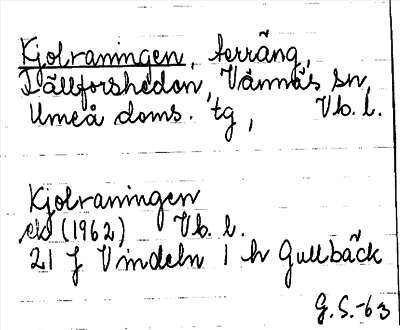 Kjolraningen, terräng,
Fällforshedon, Vännäs sn,
Umeå doms. tg, Vb. l.
Kjolraningen
ek (1962) Vb. l.
21 J Vindeln 1 h Gullbäck
G. S. -63